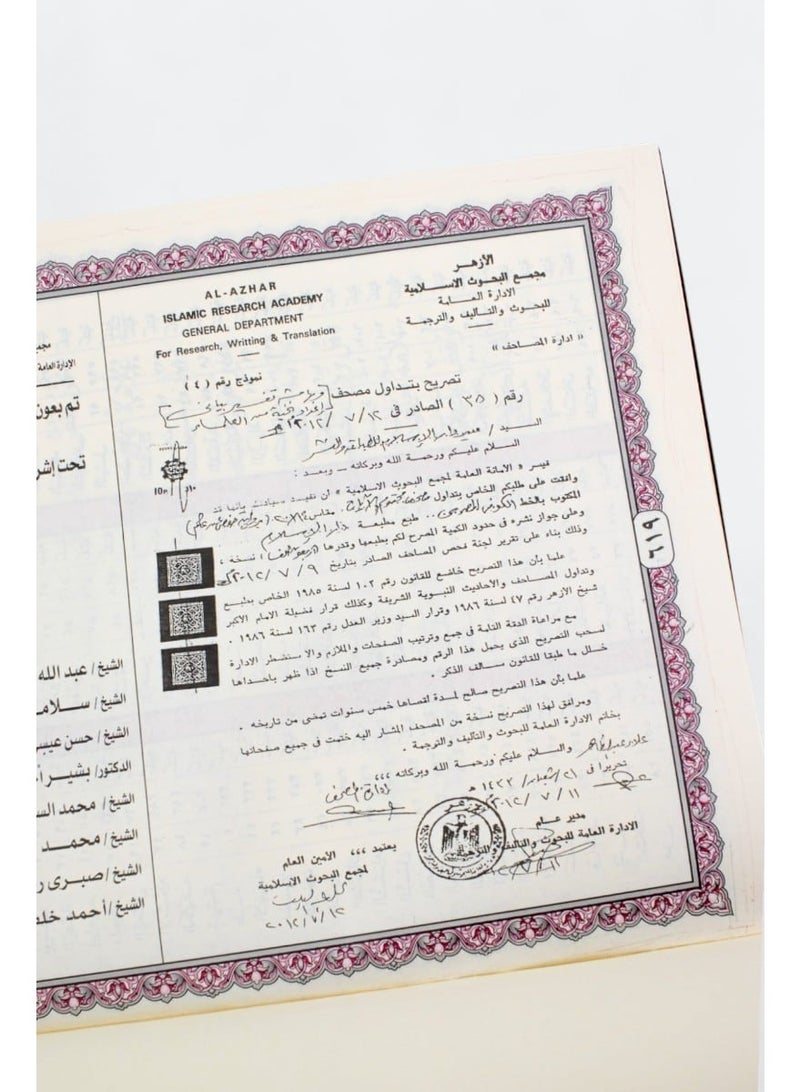 الأزهر
مجمع البحوث الاسلامية
الادارة العامة
للبحوث والتأليف والترجمة
« ادارة المصاحف »
AL-AZHAR
ISLAMIC RESEARCH ACADEMY
GENERAL DEPARTMENT
For Research, Writting & Translation
نموذج رقم (٤)
تصريح بتداول مصحف
رقم ( ٣٥ ) الصادر فى ١٢ / ٧ / ٢٠١٢
السيد /
السلام عليكم ورحمة الله وبركاته — وبعد :
« الامانة العامة لمجمع البحوث الاسلامية » ان تفيد سيادتكم بأنها قد
وافقت على طلبكم الخاص بتداول
المكتوب بالخط . طبع مطبعة
وعلى جواز نشره فى حدود الكمية المصرح لكم بطبعها وقدرها نسخة ،
وذلك بناء على تقرير لجنة فحص المصاحف الصادر بتاريخ ٩ / ٧ / ٢٠١٢
علما بأن هذا التصريح خاضع للقانون رقم ١٠٢ لسنة ١٩٨٥ الخاص بطبع
وتداول المصاحف والأحاديث النبوية الشريفة وكذلك قرار فضيلة الامام الاكبر
شيخ الازهر رقم ٤٧ لسنة ١٩٨٦ وقرار السيد وزير العدل رقم ١٦٣ لسنة ١٩٨٦ .
مع مراعاة الدقة التامة فى جمع وترتيب الصفحات والملازم والا ستضطر الادارة
لسحب التصريح الذى يحمل هذا الرقم ومصادرة جميع النسخ اذا ظهر باحداها
خلل ما طبقا للقانون سالف الذكر .
علما بأن هذا التصريح صالح لمدة اقصاها خمس سنوات تمضى من تاريخه .
ومرافق لهذا التصريح نسخة من المصحف المشار اليه ختمت فى جميع صفحاتها
بخاتم الادارة العامة للبحوث والتأليف والترجمة .
والسلام عليكم ورحمة الله وبركاته ،،،
تحريرا فى ٢١ / شعبان / ١٤٣٣ هـ
١١ / ٧ / ٢٠١٢
مدير عام
الادارة العامة للبحوث والتأليف والترجمة
يعتمد ،،، الأمين العام
لمجمع البحوث الاسلامية
٢٠١٢/٧/١٢
٦١٩
الادارة العامة
تم بعون
تحت إشر
الشيخ/ عبد الله
الشيخ/ سلام
الشيخ/ حسن عيسى
الدكتور/ بشير أ
الشيخ/ محمد الس
الشيخ/ محمد
الشيخ/ صبرى ر
الشيخ/ أحمد خلف